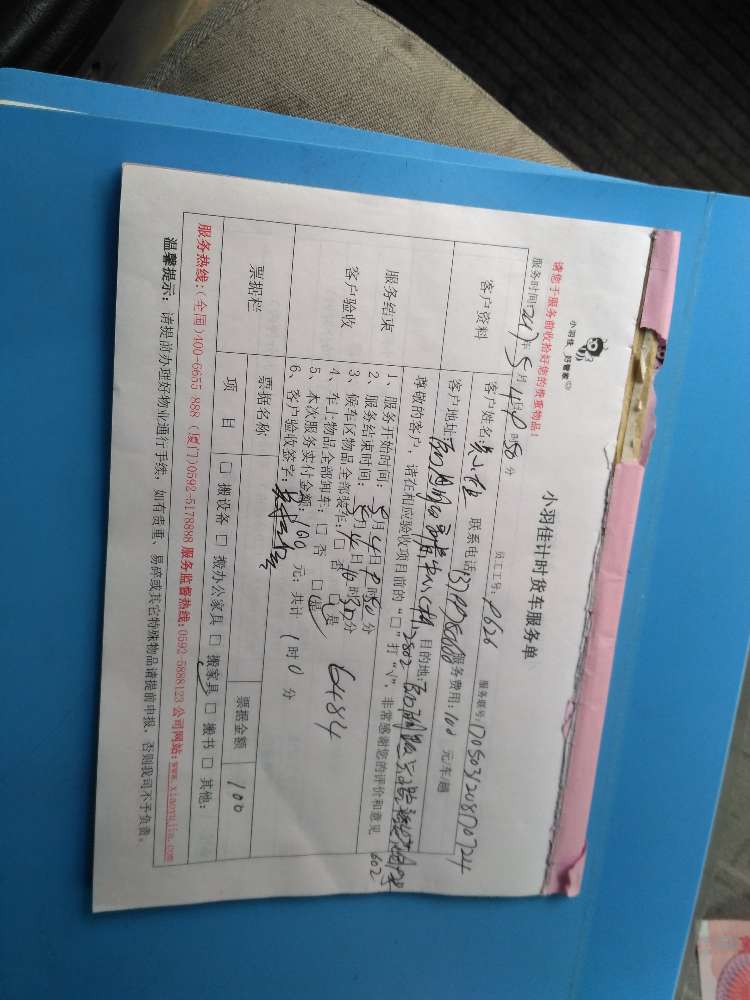 小羽佳 好管家
小羽佳计时货车服务单
请您于服务前收拾好您的贵重物品!
员工工号: P626 服务联号: 170503120817D0724
服务时间: 年 5 月 4 日 时 50 分
客户资料
客户姓名: 联系电话: 服务费用: 100 元/车/趟
客户地址: 目的地:
602
尊敬的客户, 请在相应验收项目前的“□”打“√”, 非常感谢您的评价和意见
服务结束
客户验收
1、服务开始时间: 月 4 日 9 时 50 分
2、服务结束时间: 月 4 日 10 时 50 分
3、候车区物品全部装车: □ 否 □ 是
4、车上物品全部卸车: □ 否 □ 是
5、本次服务实付金额: 100 元; 共计 1 时 0 分
6、客户验收签字:
6484
票据栏
票据名称 票据金额 100
项 目 □ 搬设备 □ 搬办公家具 □ 搬家具 □ 搬书 □ 其他:
服务热线: (全国)400-6655 888 (厦门)0592-5178898 服务监督热线: 0592-5888123 公司网站: www.xiaoyujia.com
温馨提示: 请提前办理好物业通行手续, 如有贵重、易碎或其它特殊物品请提前申报, 否则我司不予负责。